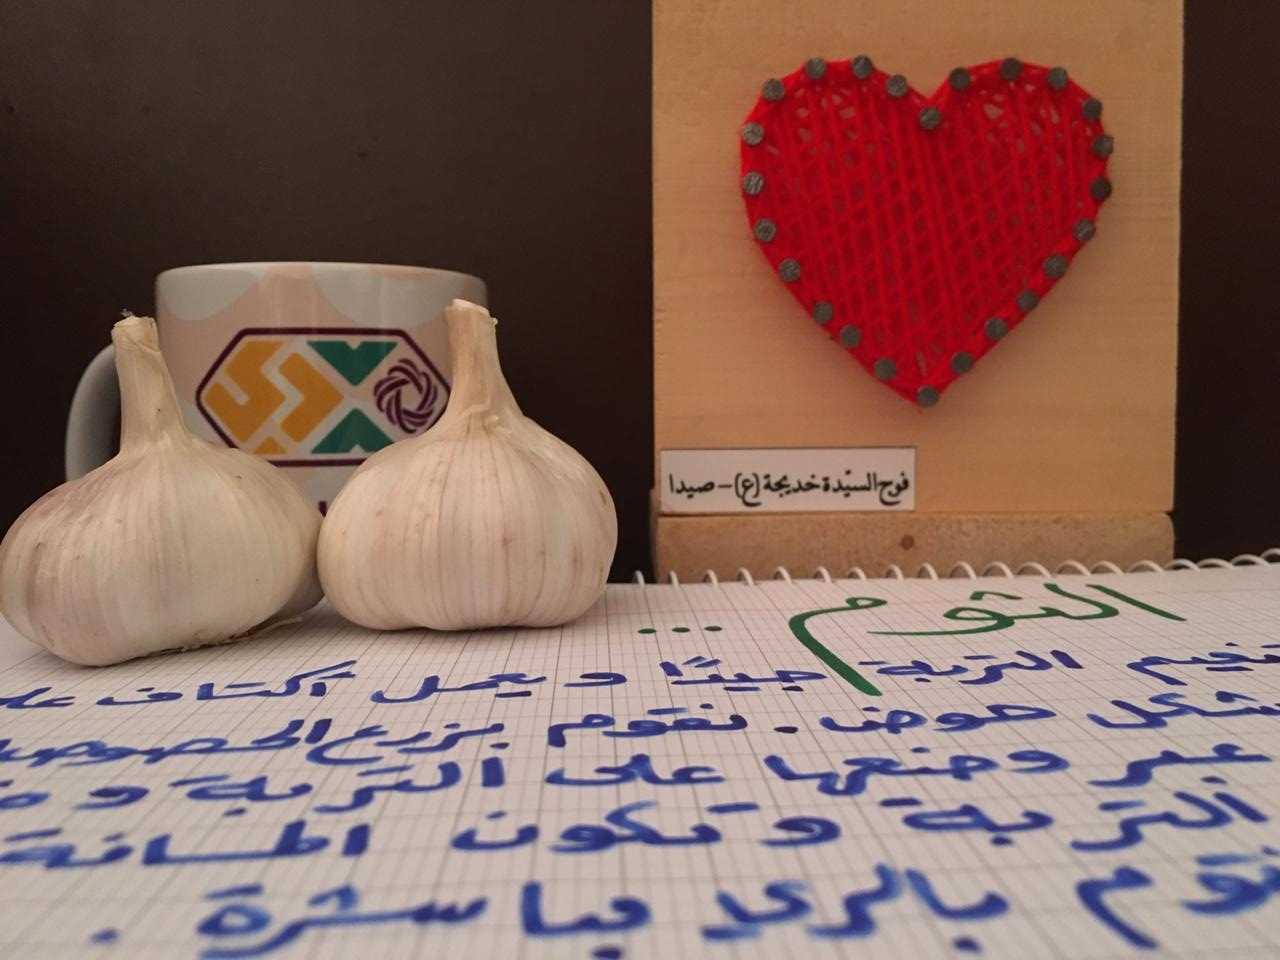 فوج السيّدة خديجة (ع) – صيدا
الثوم ...
تنعيم التربة جيدًا و يعمل أكتاف على
شكل حوض. نقوم بزرع الحصوص
عبر وضعها على التربة و
التربة و تكون المسافة
نقوم بالري مباشرة.